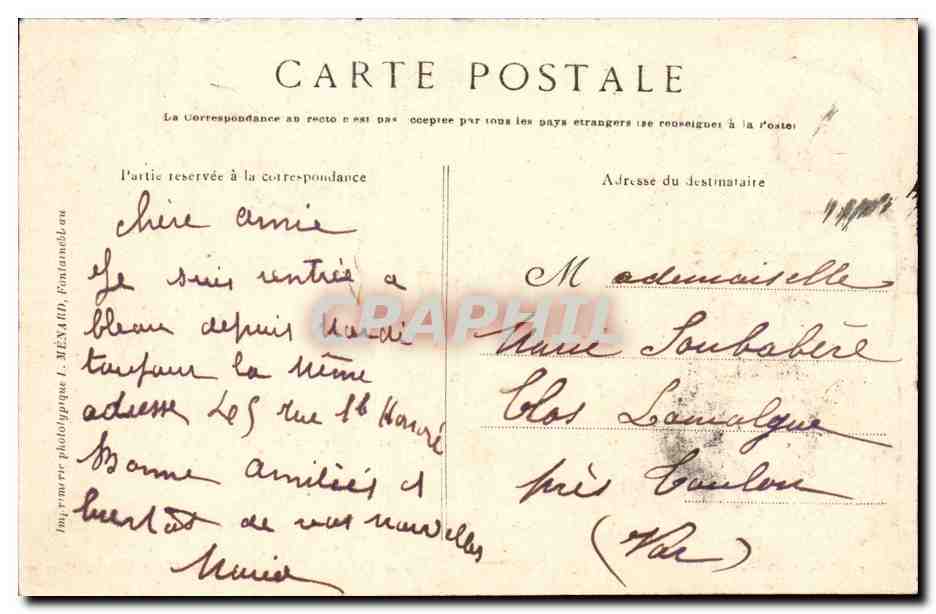 CARTE POSTALE
La Correspondance au recto n'est pas acceptée par tous les pays étrangers (se renseigner à la Poste)
Partie réservée à la correspondance
chère amie
Je suis rentrée a
bleau depuis Mardi
toujour la même
adresse 45 rue St Honoré
Bonne amitiés et
bientôt de vos nouvelles
Maria
Adresse du destinataire
Mademoiselle
Marie Soubabère
Clos Lamalgue
près Toulon
(Var)
Imprimerie phototypique L. MÉNARD, Fontainebleau
CPAPHIL